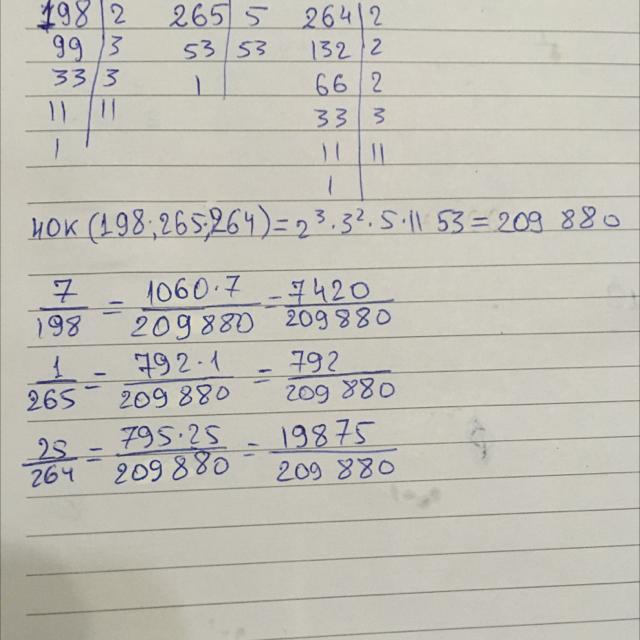 198 | 2 265 | 5 264 | 2
99 | 3 53 | 53 132 | 2
33 | 3 1 | 66 | 2
11 | 11 33 | 3
1 | 11 | 11
1 |
НОК (198, 265, 264) = 2³ · 3² · 5 · 11 53 = 209 880
7/198 = 1060 · 7/209880 = 7420/209880
1/265 = 792 · 1/209 880 = 792/209 880
25/264 = 795 · 25/209 880 = 19875/209 880